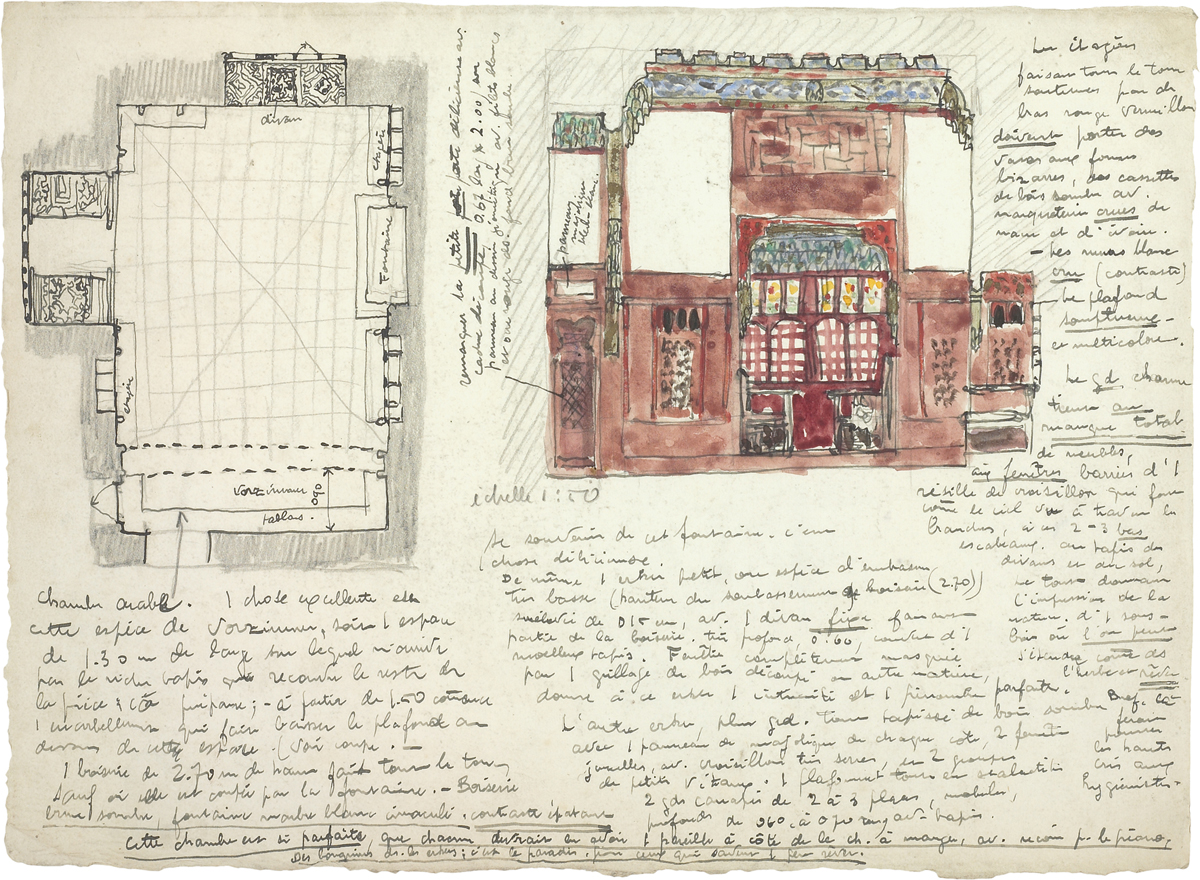 divan
étagère
Fontaine
étagère
Vorzimmer
0.90
tablars.
remarquer la petite porte délicieuse av.
cadre de 0.67 large × 2.00 / au
panneau au dessin géométrique av. filets blancs
et one rouge des. fond brun sombre
panneau
majolique
bleu-blanc.
échelle 1:50
Les étagères
faisan tous le tour
soutenues par des
bras rouge vermillon
doivent porter des
vases aux formes
bizarres, des cassettes
de bois sombre av.
marqueterie crues de
nacre et d'ivoire.
– Les murs blanc
cru (contraste)
Le plafond
somptueux –
et multicolore.
Le gd charme
tienne au
manque total
de meubles,
aux fenêtres barrées d'1
résille de croisillon qui fon
come le ciel vu à travers les
branches, à ces 2–3 bas
escabeaux. au tapis des
divans et du sol,
me tout donnan
l'impression de la
nature. d'1 sous-
bois où l'on peut
s'étendre come des
l'herbe et rêver
Bref. là
feraien
pousser
les hauts
cris aux
hygiénistes –
Se souvenir de cet fontaine. c'est 1
chose délicieuse.
De même 1 petit, ou espèce d'embrasure
très basse (hauteur du soubassement de boiserie (2.70))
surélevée de 015 cm, av. 1 divan fixe faisant
partie de la boiserie. très profond 0.60, couvert d'1
moelleux tapis. Fenêtre complètemen masquée
par 1 grillage de bois découpé ou autre matière,
donne à ce 1 intimité et 1 pénombre parfaite.
L'autre plus gd. tout tapissé de bois sombre
avec 1 panneau de majolique de chaque côté, 2 fenêtres
jumelles, av. croisillon très serrés, en 2 groupes
de petits vitraux. 1 plafonnet tout en stalactites
2 gds canapés de 2 à 3 places, mobiles,
profonds de 060 à 070 av– tapis.
Chambre arabe. 1 chose excellente est
cette espèce de Vorzimmer, soit 1 espace
de 1.30 m de large sur lequel n'ouvre
pas le riche tapis que recouvre le reste de
la pièce ; çà prépare ; – à partir de 1.50 commence
1 encorbellement qui fait baisser le plafond au
dessus de cette espace. (voir coupe. –
1 boiserie de 2.70 m de haut fait tout le tour,
sauf où elle est coupée par la fontaine. – Boiserie
brune sombre, fontaine marbre blanc immaculé. contraste épatant
Cette chambre est si parfaite, que chacun devrait en avoir 1 pareille à côté de la ch. à manger, av. recoin p. le piano,
Des longueurs ds. les ; c'est le paradis, pour ceux qui savent 1 peu rêver.